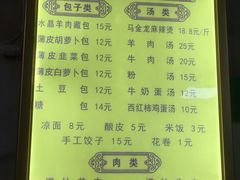 包子类
汤类
水晶羊肉藏包 15元
马金龙麻辣烫 18.8元/斤
薄皮胡萝卜包 12元
羊肉汤 25元
薄皮韭菜包 12元
牛肉汤 20元
薄皮白萝卜包 12元
粉汤 15元
土豆包 12元
牛奶蛋汤 12元
糖包 14元
西红柿鸡蛋汤 10元
凉面 8元
酿皮 5元
米饭 3元
手工饺子 15元
花卷 1元
肉类